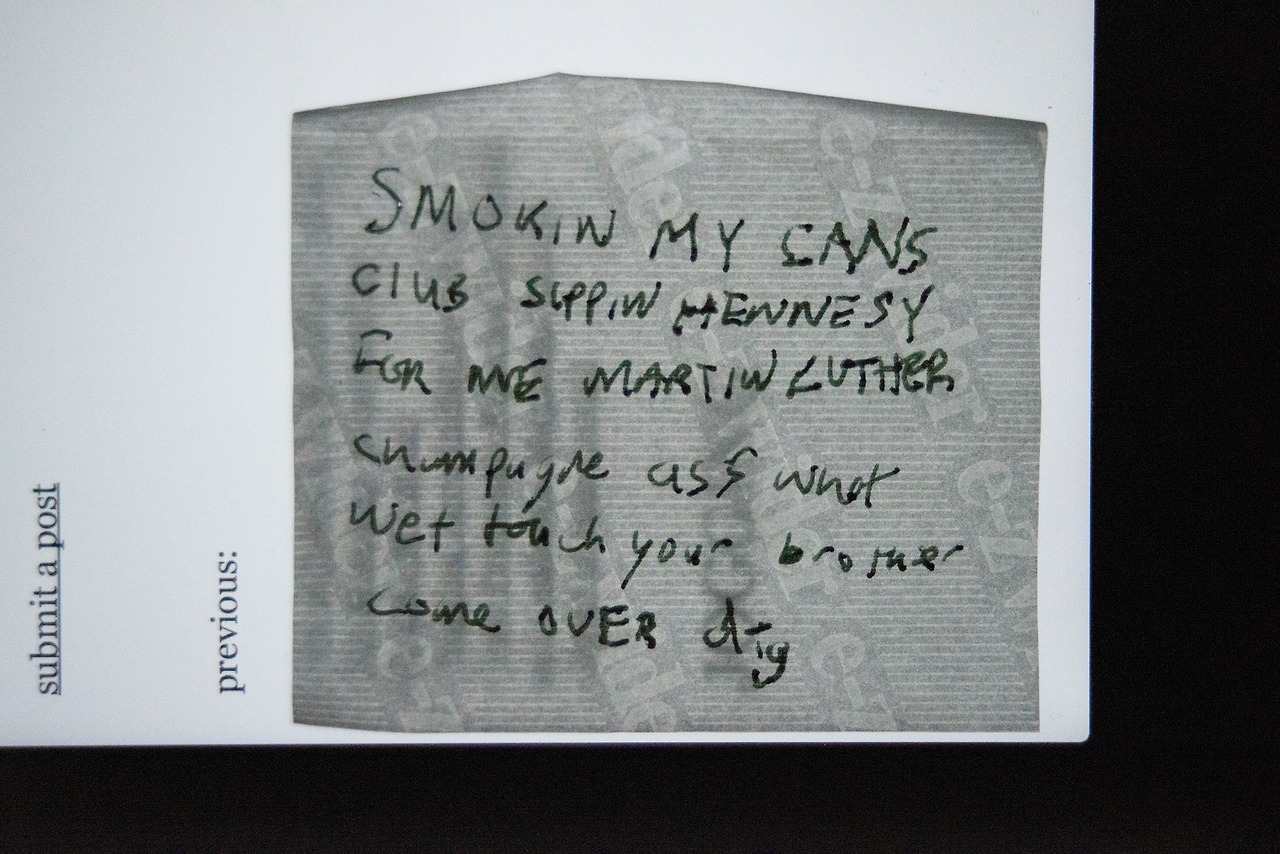 SMOKIN MY CANS
CLUB SIPPIN HENNESY
FOR ME MARTIN LUTHER
champagne ass what
wet touch your brother
come OVER
submit a post
previous: